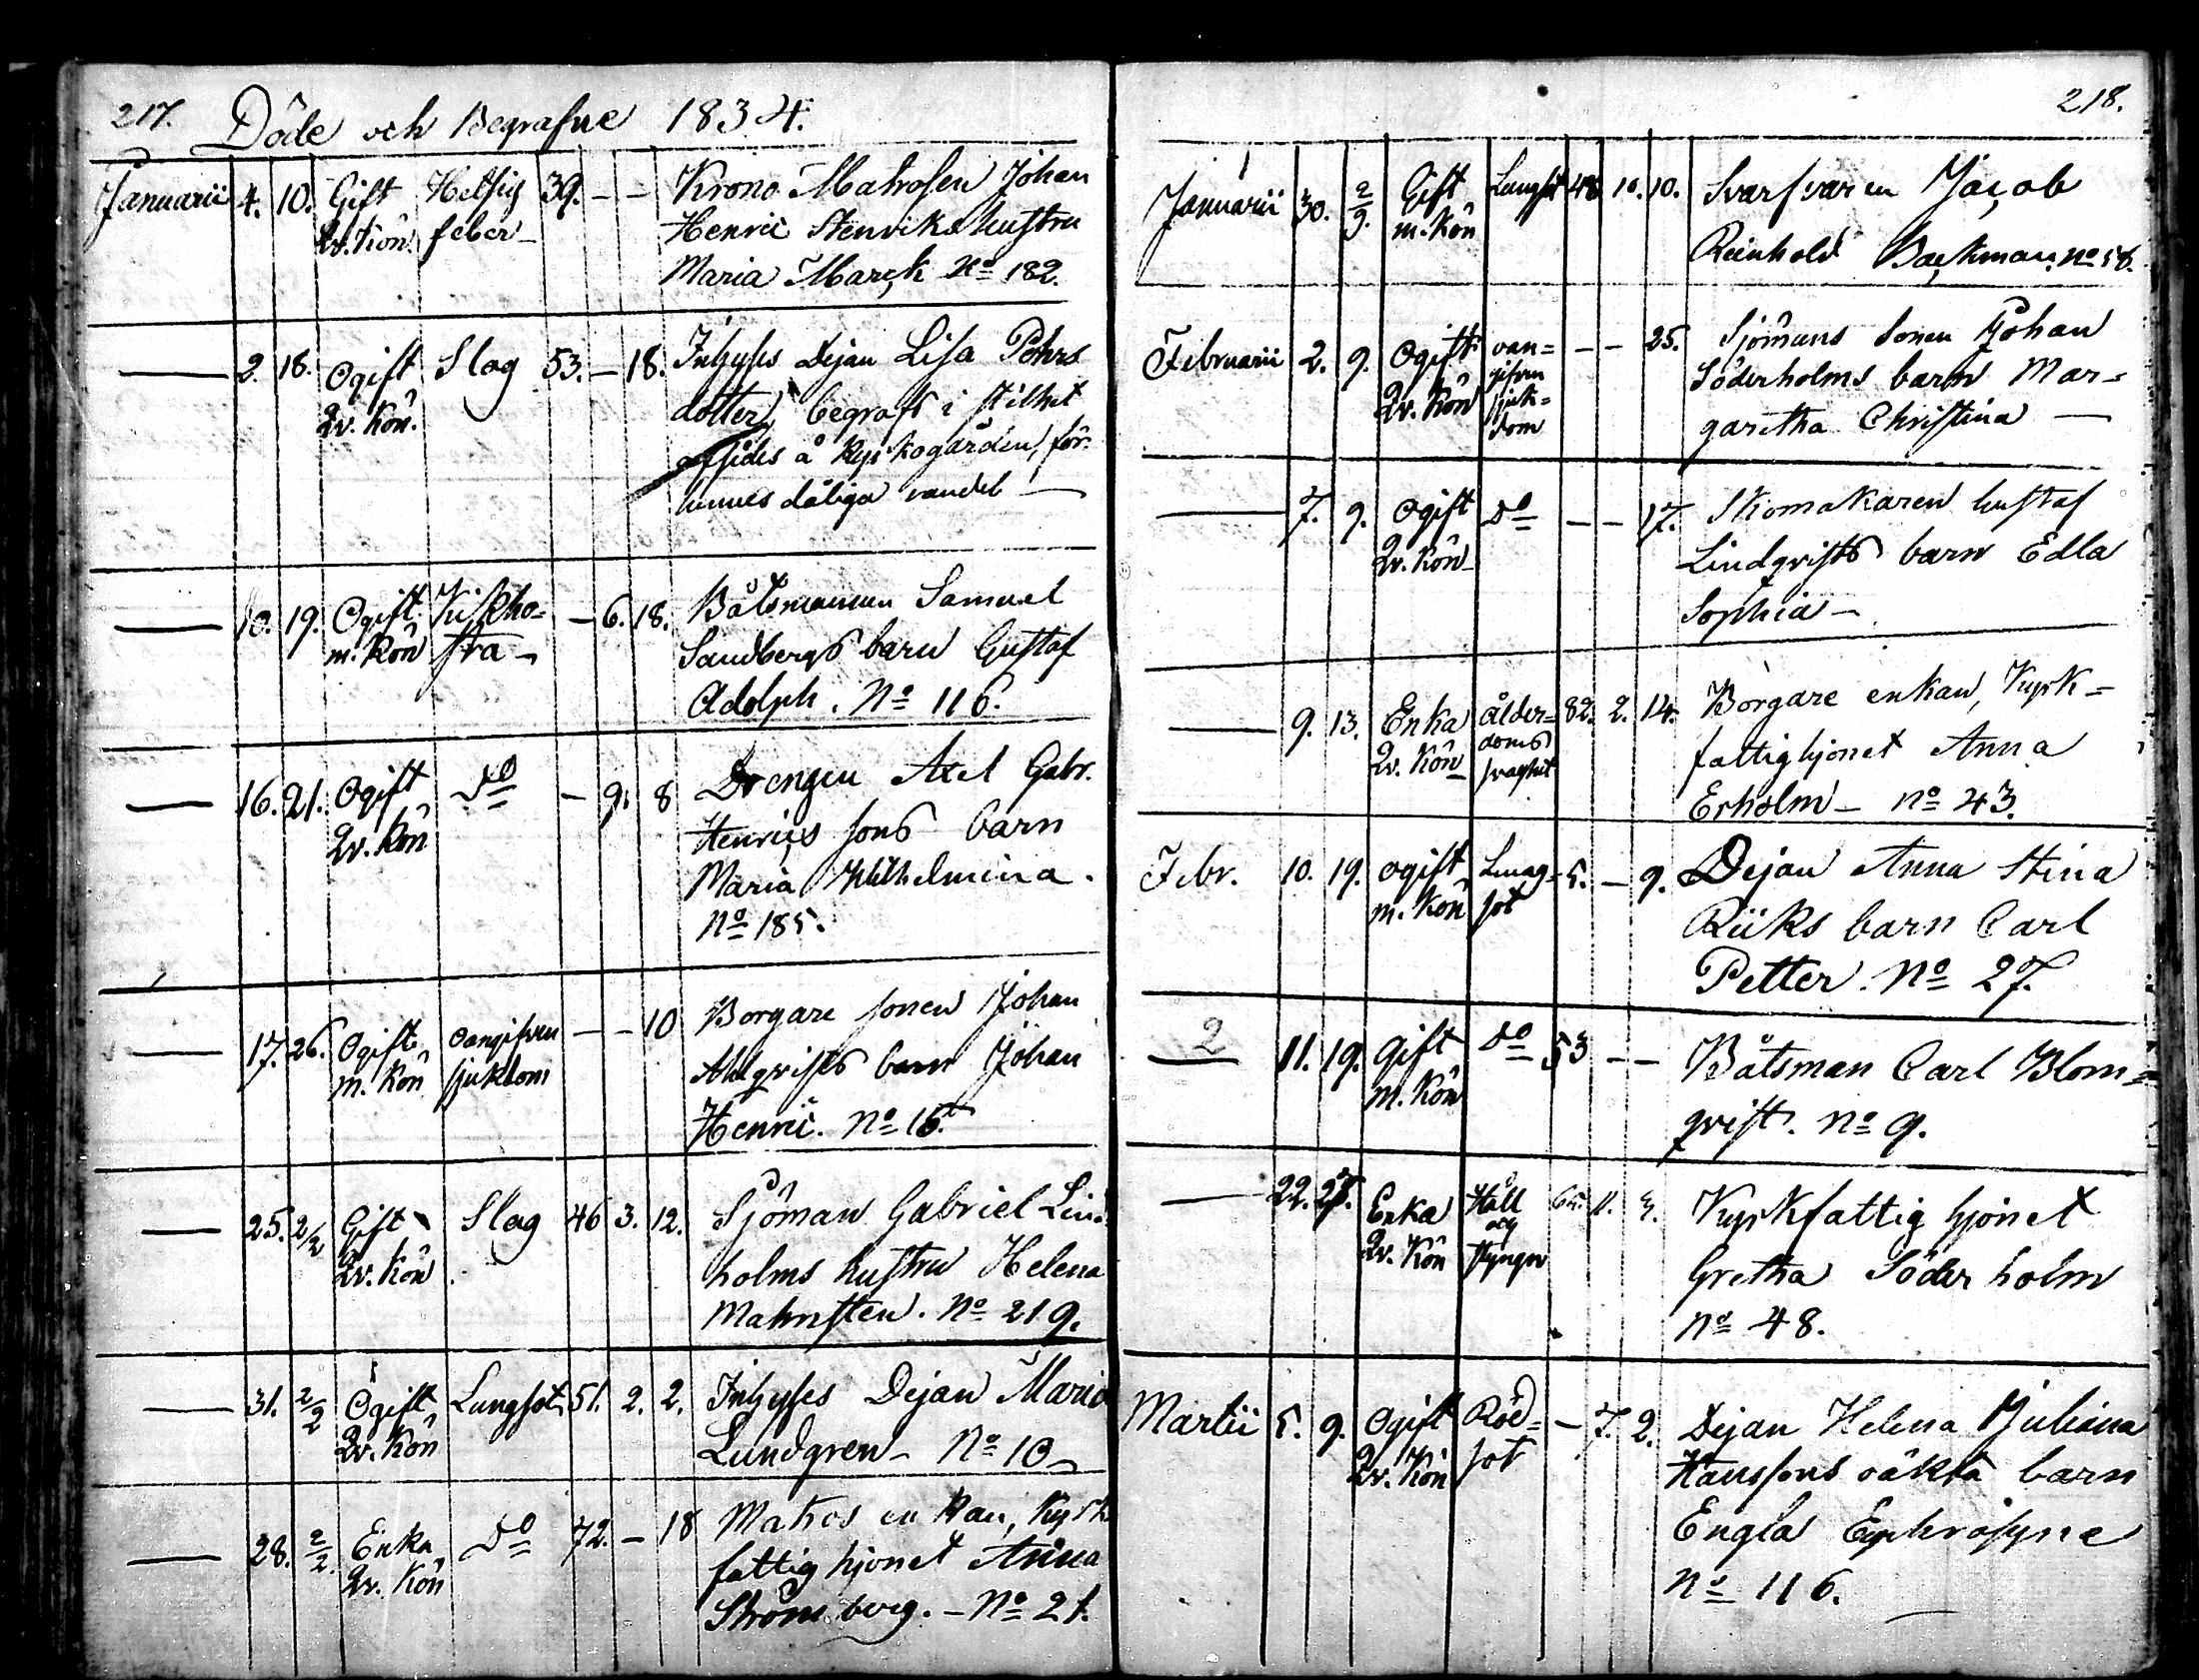 217. Döde och Begrafne 1834.
Januarii 4. 10. Gift Hetsig 39. - - Krono Matrosen Johan
Qv. Kön. feber- Henric Stenviks hustru
Maria Marck No 182.
2. 18. Ogift Slag 53. - 18. Inhyses Dejan Lisa Pehrs
Qv. Kön. dotter, begrafd i stilhet
afsides å kyrkogården, för
hennes dåliga vandel -
10. 19. Ogift Kikho= - 6. 18. Båtsmannen Samuel
m. Kön sta - Sandbergs barn Gustaf
Adolph. No 116.
16. 21. Ogift Do - 9. 8 Drengen Axel Gabr.
Qv. Kön Henrics sons barn
Maria Wilhelmina.
No 185.
17. 26. Ogift oangifven - - 10 Borgare sonen Johan
m. Kön sjukdom Ahlqvists barn Johan
Henric. No 16.
25. 2/2 Gift Slag 46 3. 12. Sjöman Gabriel Lind
Qv. Kön holms hustru Helena
Malmsten. No 219.
31. 2/9 Ogift Lungsot 51. 2. 2. Inhyses Dejan Maria
Qv. Kön Lundgren - No 10 -
28. 2/2. Enka Do 72. - 18 Matros enkan, Kyrk
Qv. Kön fattig hjonet Anna
Ströms berg. - No 21.
218.
Januarii 30. 2/9. Gift Lungsot 48 10. 10. Svarfvaren Jacob
m. Kön Reinhold Backman. No 58.
Februarii 2. 9. Ogift oan= - - 25. Sjömans sonen Johan
Qv. Kön gifven Söderholms barn Mar=
sjuk= garetha Christina -
dom
7. 9. Ogift Do - - 17. Skomakaren Gustaf
Qv. Kön - Lindqvists barn Edla
Sophia -
9. 13. Enka Ålder= 82. 2. 14. Borgare enkan, Kyrk=
Qv. Kön doms fattighjonet Anna
svaghet Erholm - No 43.
Febr. 10. 19. ogift Lung= 5. - 9. Dejan Anna Stina
m. Kön sot Riiks barn Carl
Petter. No 27.
2 11. 19. Gift Do 53 - - Båtsman Carl Blom=
m. Kön qvist. No 9.
22. Enka Håll 65. 11. Kyrkfattig hjonet
Qv. Kön och Gretha Söder holm
styngn No 48.
Martii 5. 9. Ogift Röd= - 7. 2. Dejan Helena Juliana
Qv. Kön sot Hanssons oäkta barn
Engla Euphrosyne
No 116.